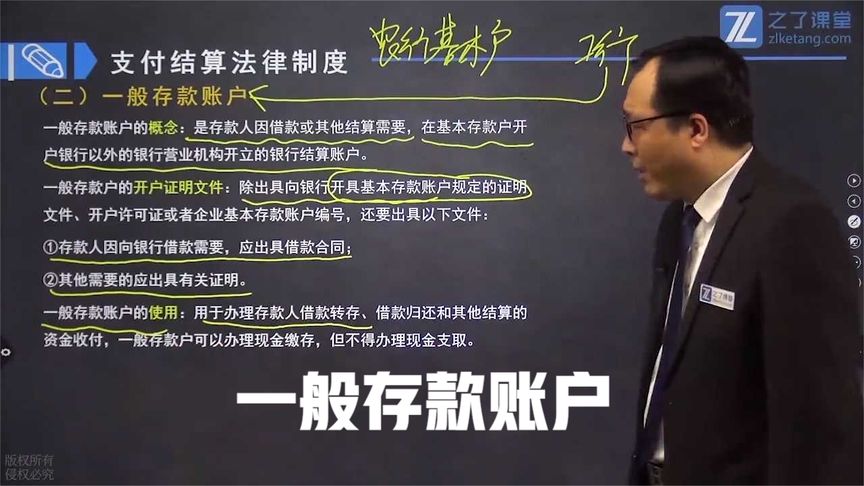 之了课堂
zlketang.com
支付结算法律制度
（二）一般存款账户
一般存款账户的概念：是存款人因借款或其他结算需要，在基本存款户开
户银行以外的银行营业机构开立的银行结算账户。
一般存款户的开户证明文件：除出具向银行开具基本存款账户规定的证明
文件、开户许可证或者企业基本存款账户编号，还要出具以下文件：
①存款人因向银行借款需要，应出具借款合同；
②其他需要的应出具有关证明。
一般存款账户的使用：用于办理存款人借款转存、借款归还和其他结算的
资金收付，一般存款户可以办理现金缴存，但不得办理现金支取。
之了课堂
一般存款账户
版权所有
侵权必究